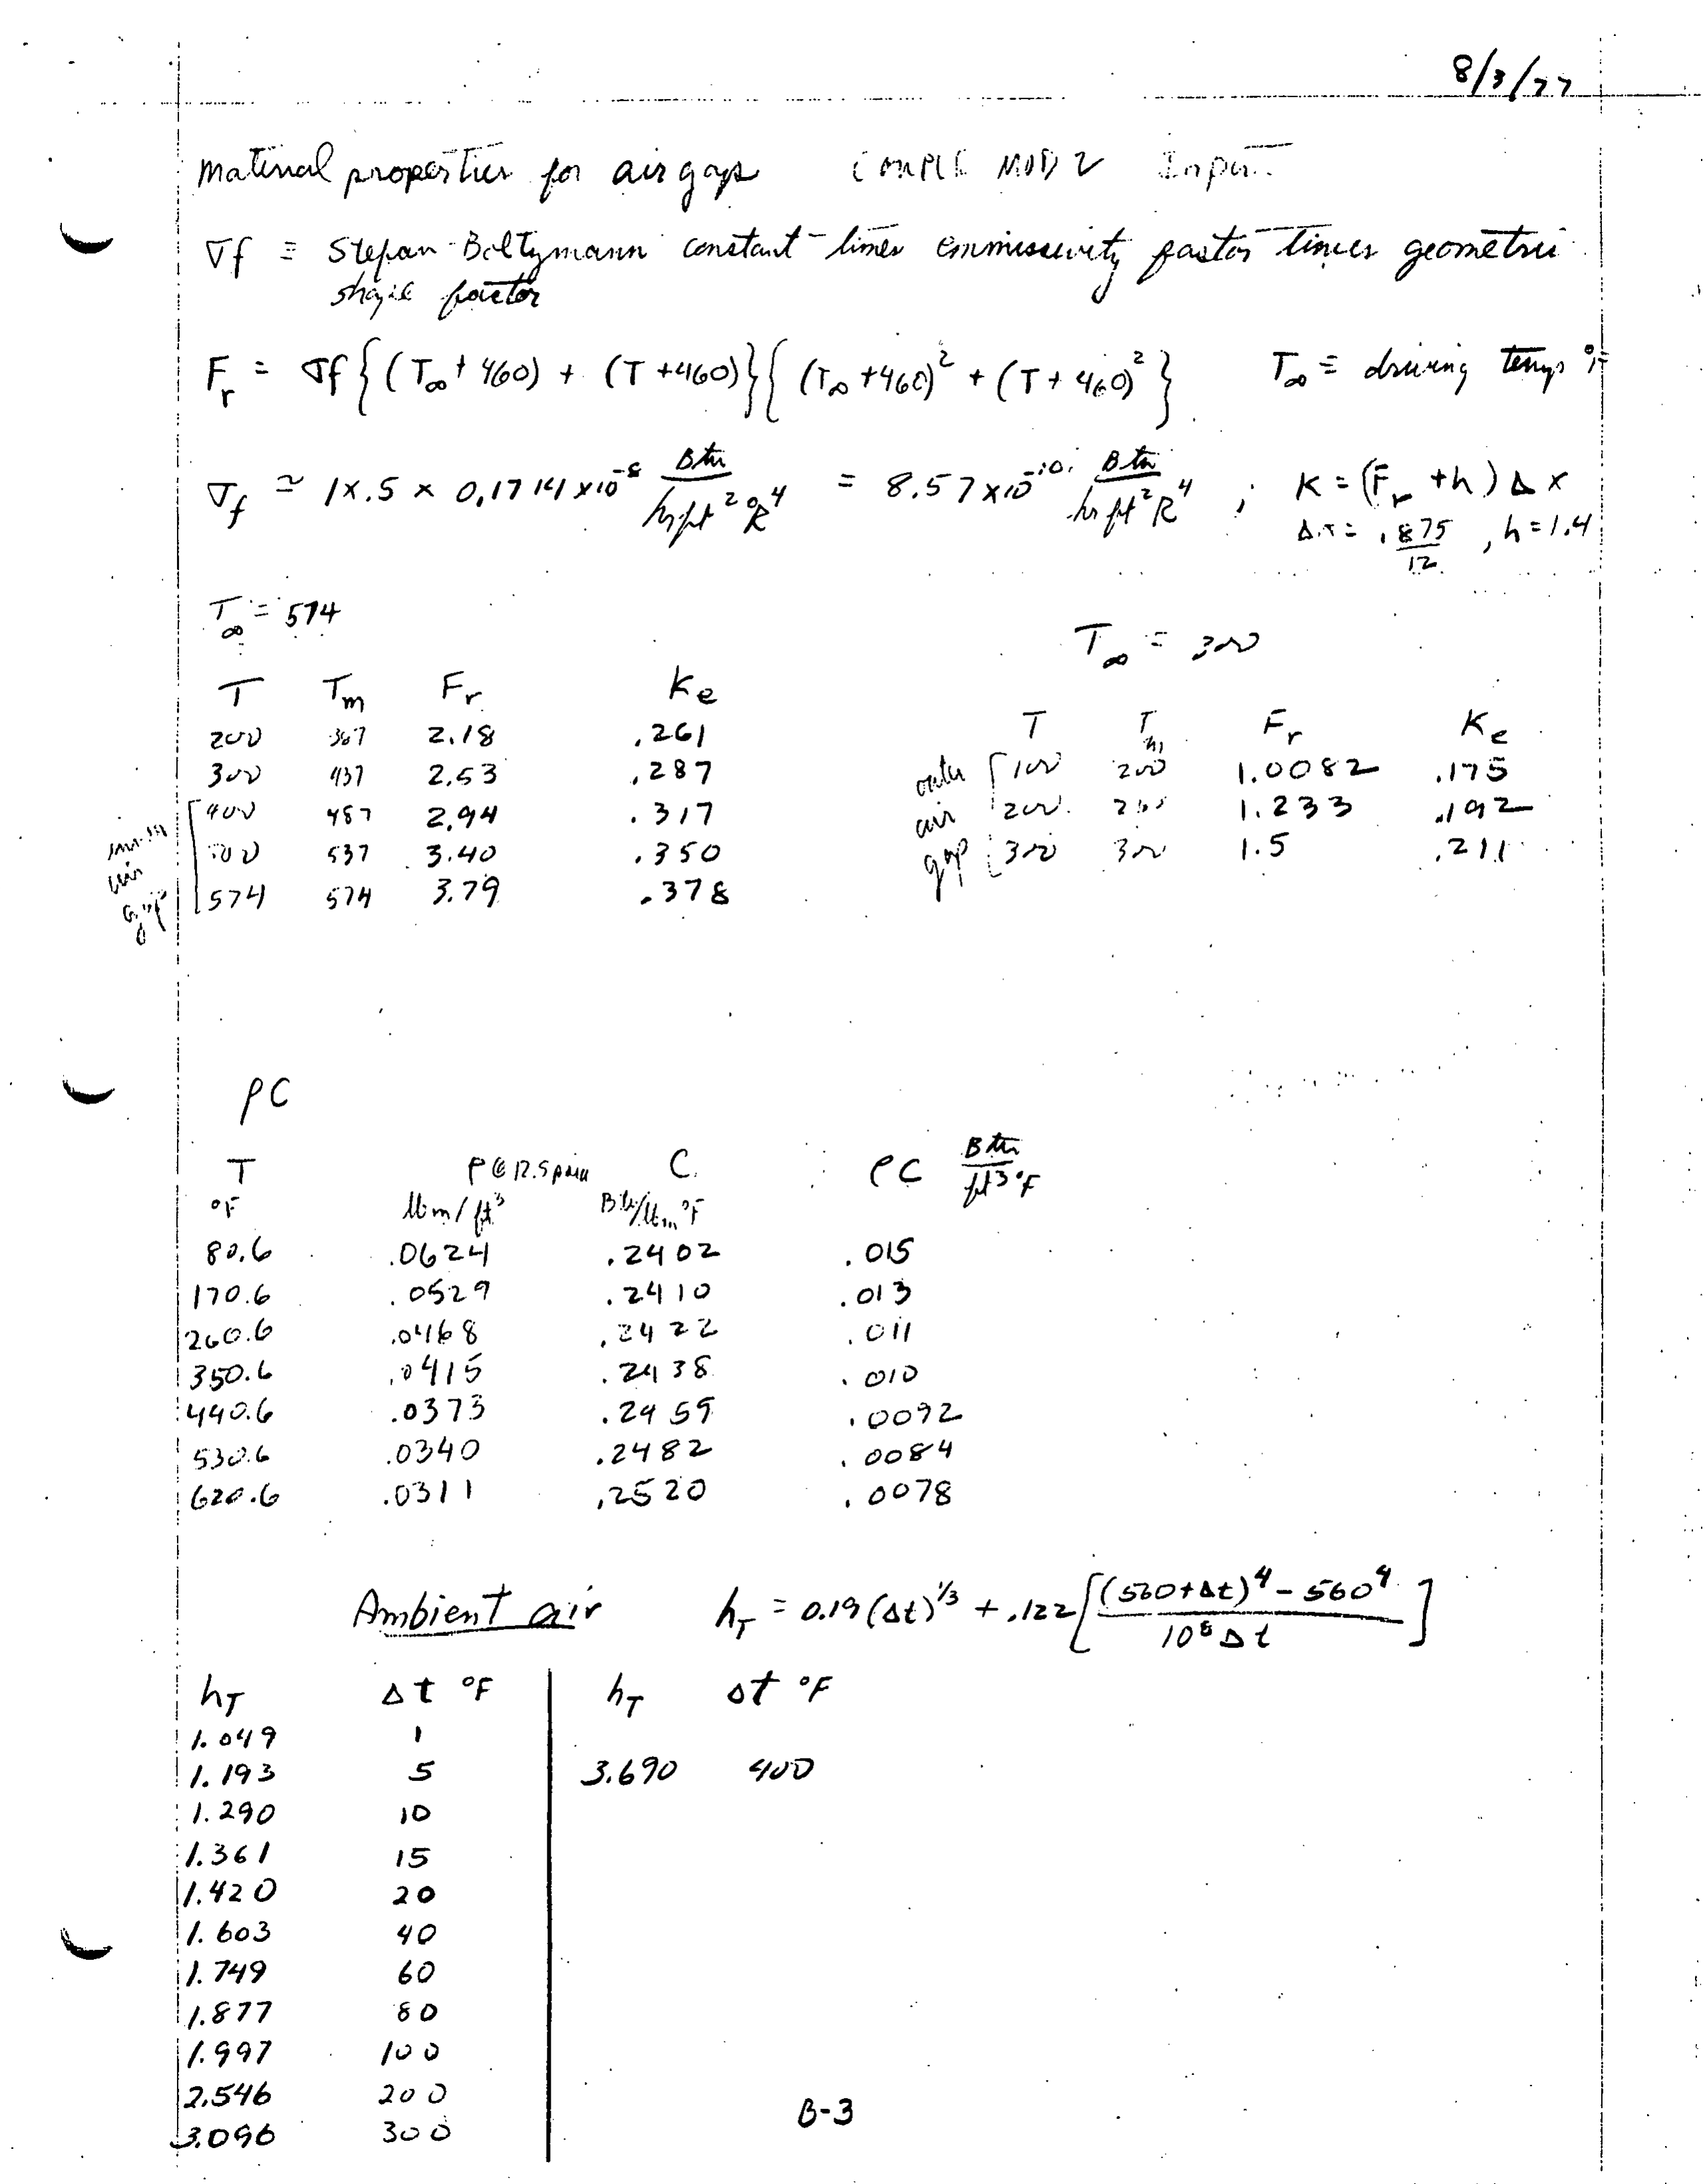 8/3/77
Material properties for air gaps COUPLE MOD 2 Input
σf ≡ Stefan-Boltzmann constant times emmissivity factor times geometric
shape factor
F_r = σf {(T∞ + 460) + (T + 460)}{(T∞ + 460)² + (T + 460)²} T∞ ≡ driving temp °F
σf ≃ 1 × .5 × 0.1714 × 10⁻⁸ Btu/hr ft² °R⁴ = 8.57 × 10⁻¹⁰ Btu/hr ft² R⁴ ; K = (F_r + h) Δx
Δx = .875/12 , h = 1.4
T∞ = 574
T∞ = 300
T T_m F_r K_e
200 367 2.18 .261
300 437 2.53 .287
400 487 2.94 .317
500 537 3.40 .350
574 574 3.79 .378
air gap
T T_m F_r K_e
100 200 1.0082 .175
200 250 1.233 .192
300 300 1.5 .211
outer air gap
ρC
T ρ @ 12.5 psia C ρC Btu/ft³ °F
°F lbm/ft³ Btu/lbm °F
80.6 .0624 .2402 .015
170.6 .0529 .2410 .013
260.6 .0468 .2422 .011
350.6 .0415 .2438 .010
440.6 .0373 .2459 .0092
530.6 .0340 .2482 .0084
620.6 .0311 .2520 .0078
Ambient air h_T = 0.19 (Δt)^1/3 + .122 [((560 + Δt)⁴ - 560⁴)/(10⁸ Δt)]
h_T Δt °F h_T Δt °F
1.049 1
1.193 5 3.690 400
1.290 10
1.361 15
1.420 20
1.603 40
1.749 60
1.877 80
1.997 100
2.546 200
3.096 300
B-3